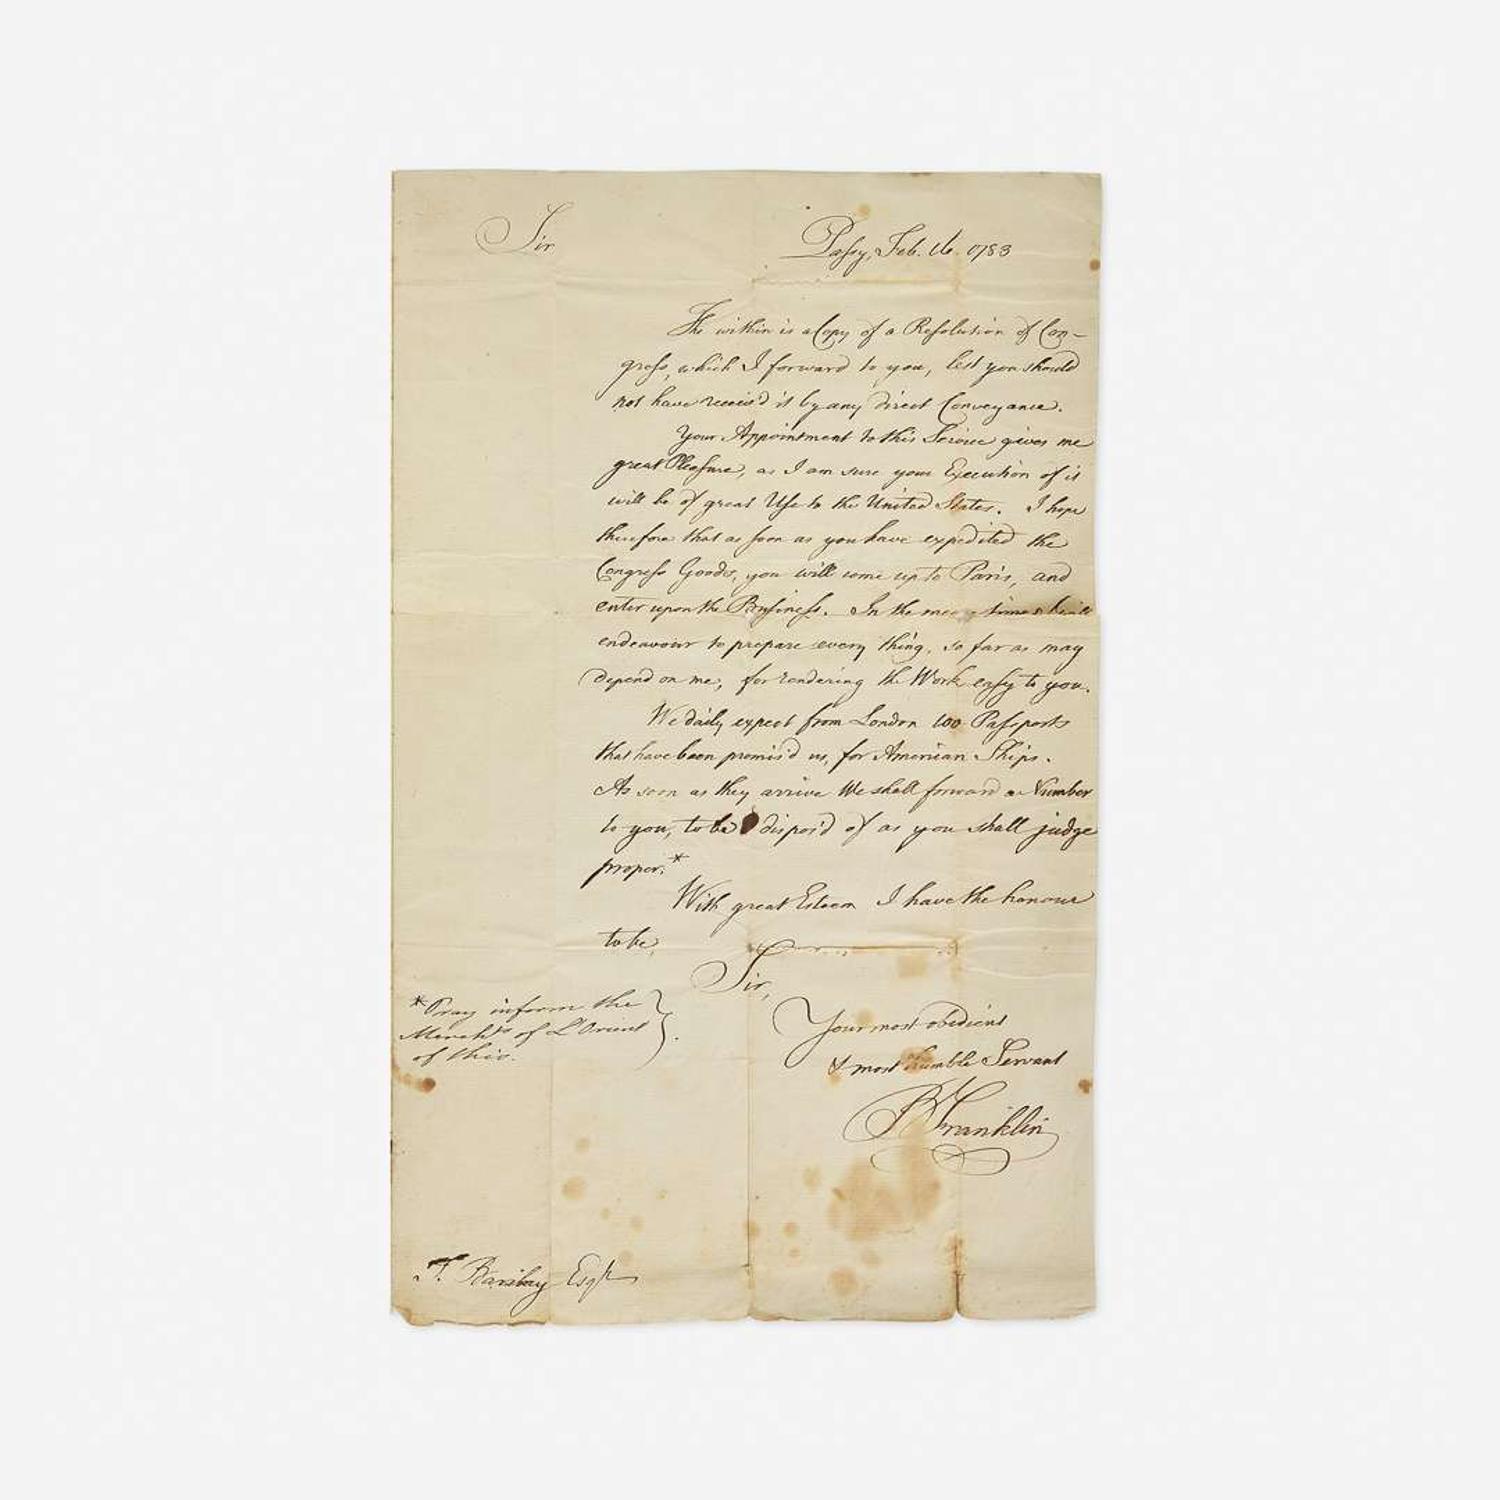 Sir
Passy, Feb. 16. 1783
The within is a Copy of a Resolution of Con-
gress, which I forward to you, lest you should
not have receiv'd it by any direct Conveyance.
Your Appointment to this Service gives me
great Pleasure, as I am sure your Execution of it
will be of great Use to the United States. I hope
therefore that as soon as you have expedited the
Congress Goods, you will come up to Paris, and
enter upon the Business. In the mean time I shall
endeavour to prepare every thing, so far as may
depend on me, for rendering the Work easy to you.
We daily expect from London 100 Passports
that have been promis'd us, for American Ships.
As soon as they arrive We shall forward a Number
to you, to be dispos'd of as you shall judge
proper.*
With great Esteem I have the honour
to be,
Sir,
* Pray inform the
Merchts of L'Orient
of this.
Your most obedient
& most humble Servant
B Franklin
T. Barclay Esqr